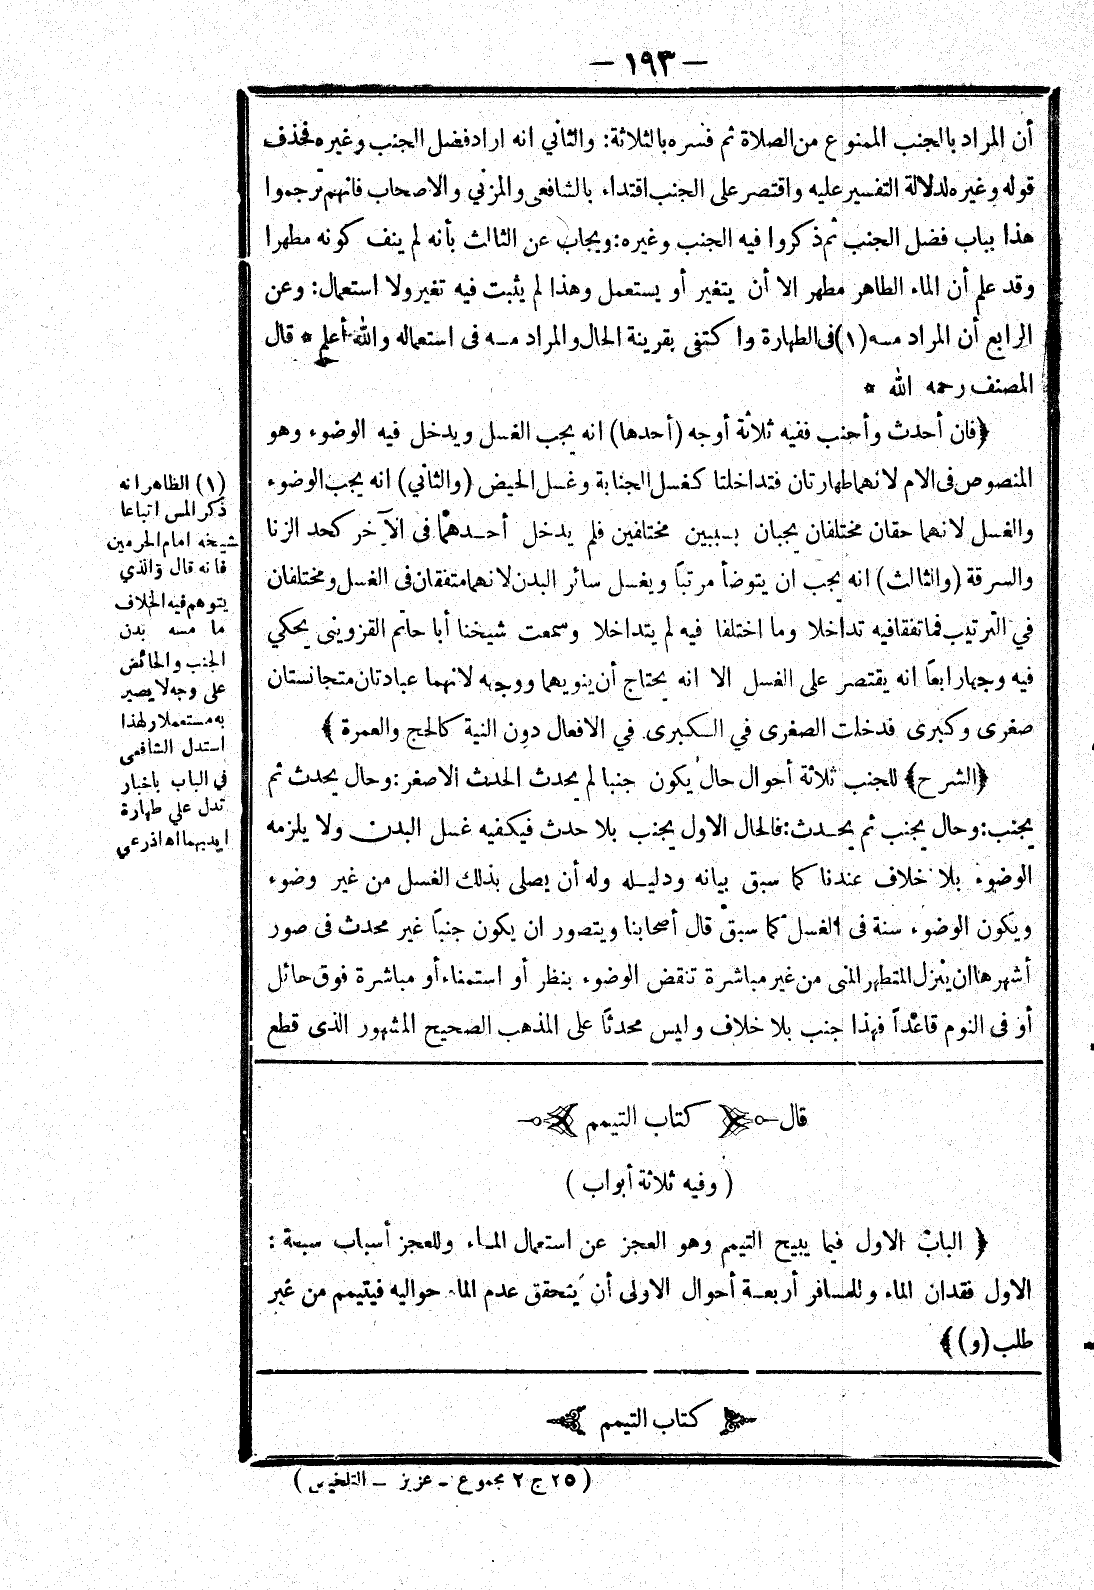 — ١٩٣ —
أن المراد بالجنب الممنوع من الصلاة ثم فسره بالثلاثة: والثاني انه اراد فضل الجنب وغيره فحذف
قوله وغيره لدلالة التفسير عليه واقتصر على الجنب اقتداء بالشافعى والمزني والاصحاب فانهم ترجموا
هذا بباب فضل الجنب ثم ذكروا فيه الجنب وغيره: ويجاب عن الثالث بأنه لم ينف كونه مطهرا
وقد علم أن الماء الطاهر مطهر الا أن يتغير أو يستعمل وهذا لم يثبت فيه تغير ولا استعمال: وعن
الرابع أن المراد مسه (١) فى الطهارة واكتفى بقرينة الحال والمراد مسه فى استعماله والله أعلم * قال
المصنف رحمه الله *
﴿فان أحدث وأجنب ففيه ثلاثة أوجه (أحدها) انه يجب الغسل ويدخل فيه الوضوء وهو
المنصوص فى الام لانهما طهارتان فتداخلتا كغسل الجنابة وغسل الحيض (والثاني) انه يجب الوضوء
والغسل لانهما حقان مختلفان يجبان بسببين مختلفين فلم يدخل أحدهما فى الآخر كحد الزنا
والسرقة (والثالث) انه يجب ان يتوضأ مرتباً ويغسل سائر البدن لانهما متفقان فى الغسل ومختلفان
في الترتيب فما تفقا فيه تداخلا وما اختلفا فيه لم يتداخلا وسمعت شيخنا أبا حاتم القزوينى يحكي
فيه وجها رابعاً انه يقتصر على الغسل الا انه يحتاج أن ينويهما ووجهه لانهما عبادتان متجانستان
صغرى وكبرى فدخلت الصغرى في الكبرى في الافعال دون النية كالحج والعمرة﴾
﴿الشرح﴾ للجنب ثلاثة أحوال حال يكون جنبا لم يحدث الحدث الاصغر: وحال يحدث ثم
يجنب: وحال يجنب ثم يحدث: فالحال الاول يجنب بلا حدث فيكفيه غسل البدن ولا يلزمه
الوضوء بلا خلاف عندنا كما سبق بيانه ودليله وله أن يصلى بذلك الغسل من غير وضوء
ويكون الوضوء سنة فى الغسل كما سبق قال أصحابنا ويتصور ان يكون جنباً غير محدث فى صور
أشهرها ان ينزل المتطهر المنى من غير مباشرة تنقض الوضوء بنظر أو استمناء أو مباشرة فوق حائل
أو فى النوم قاعداً فهذا جنب بلا خلاف وليس محدثاً على المذهب الصحيح المشهور الذى قطع
(١) الظاهر انه
ذكر المس اتباعا
لشيخه امام الحرمين
فانه قال والذي
يتوهم فيه الخلاف
ما مسه بدن
الجنب والحائض
على وجه لا يصير
به مستعملا ولهذا
استدل الشافعى
في الباب باخبار
تدل علي طهارة
ايديهما اه اذرعي
قال ﴿ كتاب التيمم ﴾
( وفيه ثلاثة أبواب )
﴿ الباب الاول فيما يبيح التيمم وهو العجز عن استعمال الماء وللعجز أسباب سبعة :
الاول فقدان الماء وللمسافر أربعة أحوال الاولى أن يتحقق عدم الماء حواليه فيتيمم من غير
طلب (و)﴾
﴿ كتاب التيمم ﴾
( ٢٥ ج ٢ مجموع - عزيز - التلخيص )